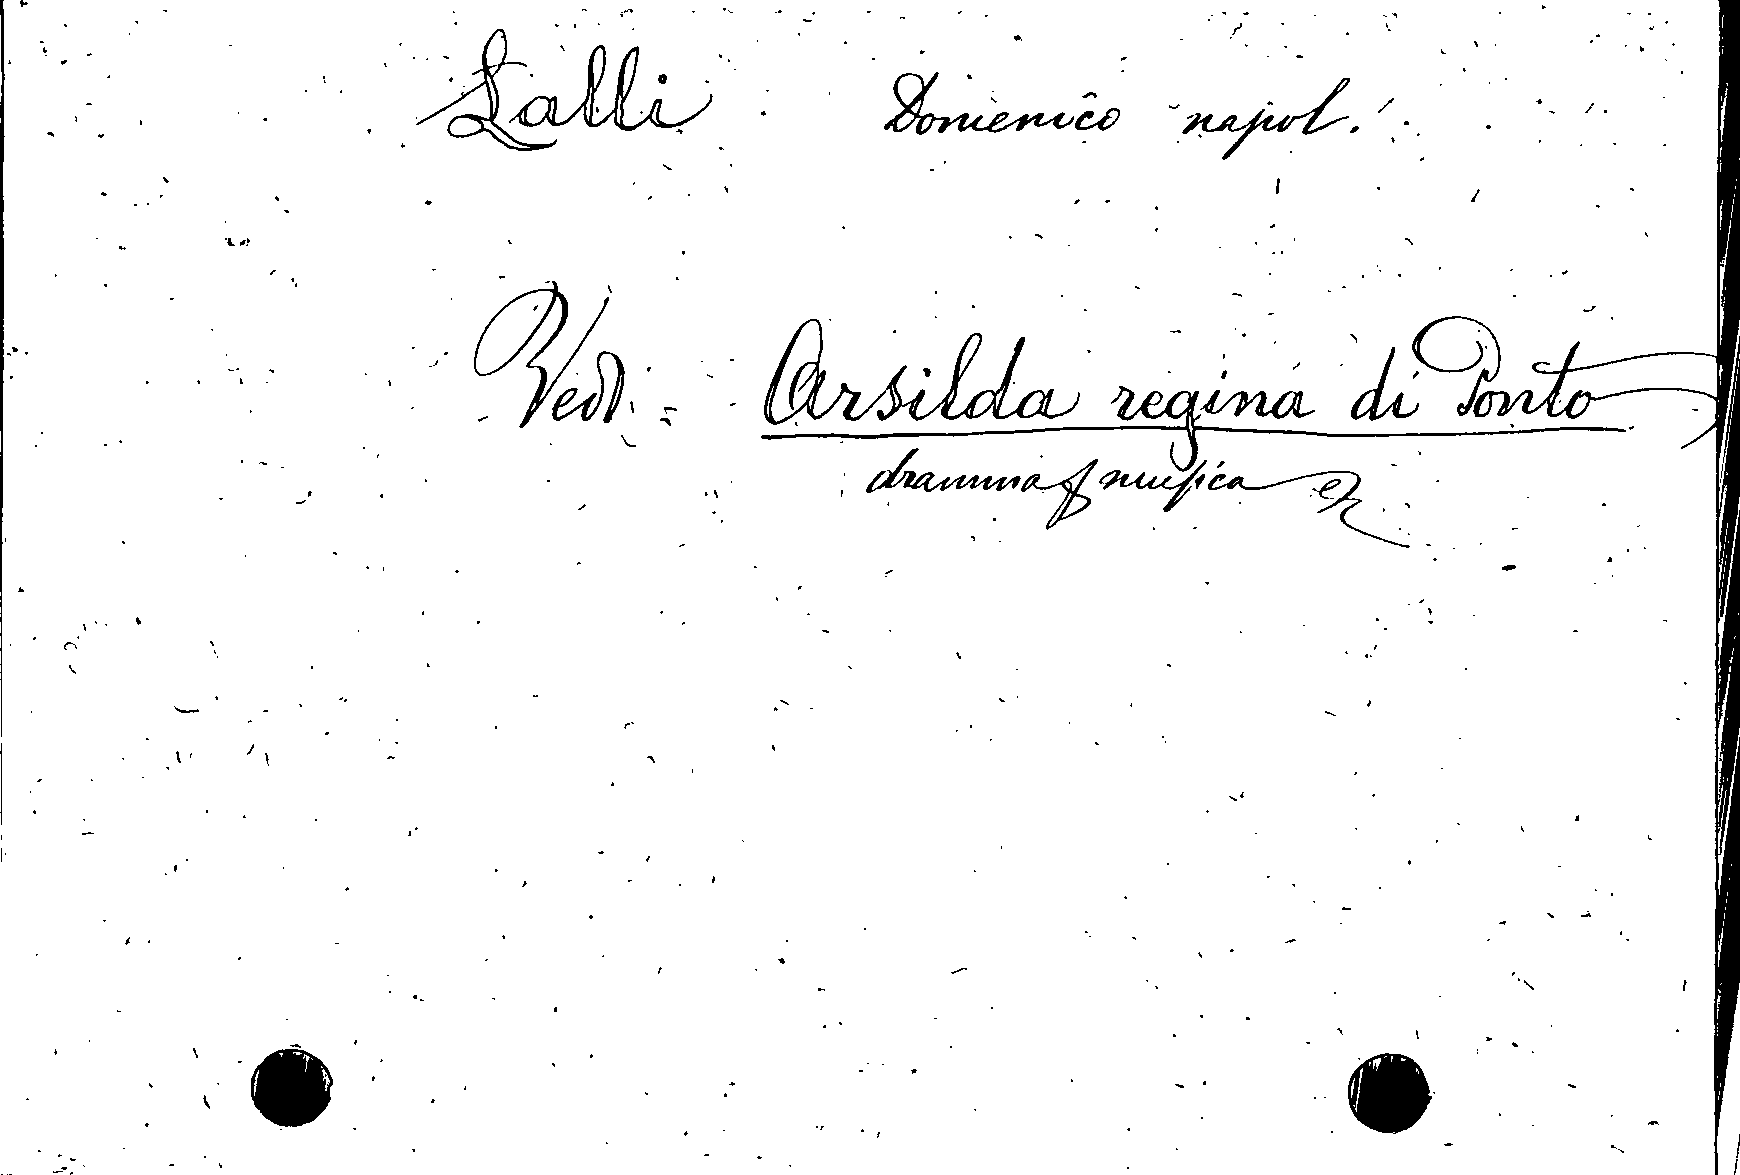 Lalli Domenico napol.
Vedi: Arsilda regina di Ponto
dramma p musica